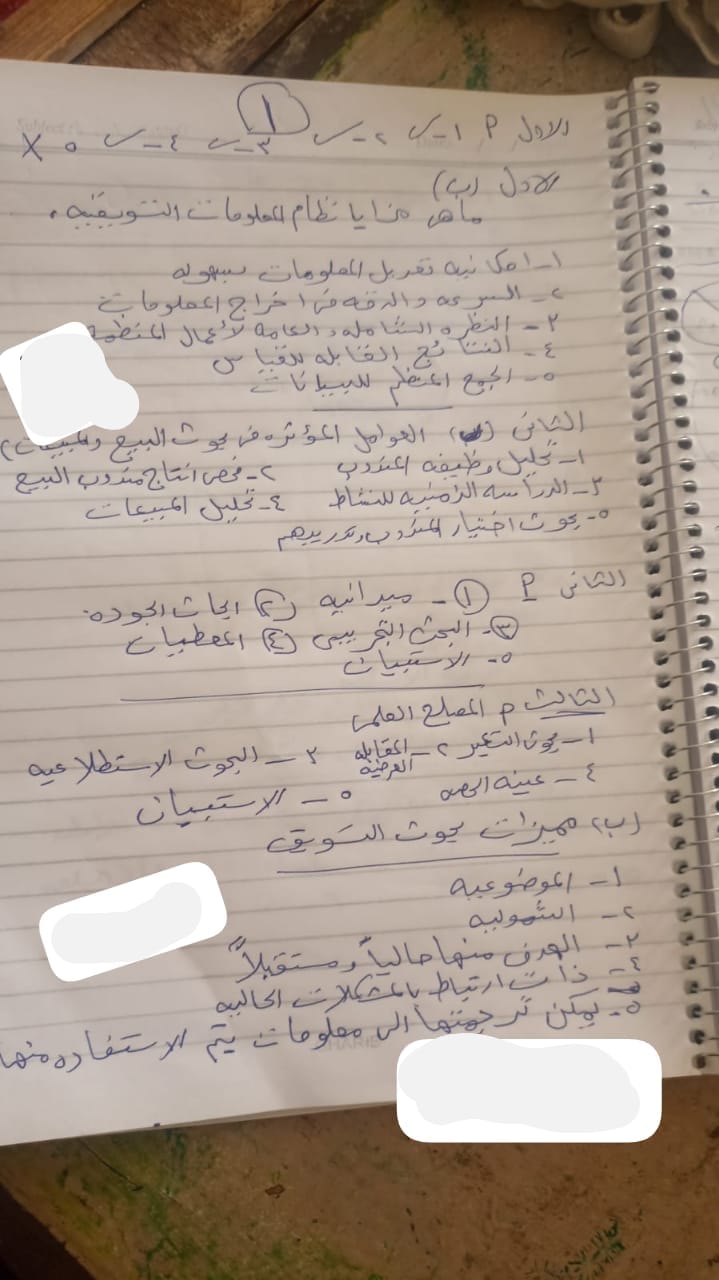 ١
الاول P ١- ں ٢- ں ٣- ں ٤- ں ٥ X
الاول (ب)
ماهى مزايا نظام المعلومات التسويقيه.
١- امكانيه تعديل المعلومات بسهوله
٢- السرعه والدقه فى اخراج المعلومات
٣- النظره الشامله والعامه لأعمال المنظمه
٤- النتائج القابله للقياس
٥- الجمع المنظم للبيانات
الثانى (ب) العوامل المؤثره فى بحوث البيع والمبيعات
١- تحليل وظيفه المندوب ٢- فحص انتاج مندوب البيع
٣- الدراسه الزمنيه للنشاط ٤- تحليل المبيعات
٥- بحوث اختيار المندوب وتدريبهم
الثانى P ١- ميدانيه ٢ ابحاث الجوده.
٣- البحث التجريبى ٤ المعطيات
٥- الاستبيان
الثالث P المصطلح العلمى
١- بحوث التسعير ٢- المقابله العرضيه ٣- البحوث الاستطلاعيه
٤- عينه الحصه ٥- الاستبيان
(ب) مميزات بحوث التسويق
١- الموضوعيه
٢- الشموليه
٣- الهدف منها حالياً ومستقبلاً
٤- ذات ارتباط بالمشكلات الحاليه
٥- يمكن ترجمتها الى معلومات يتم الاستفاده منها